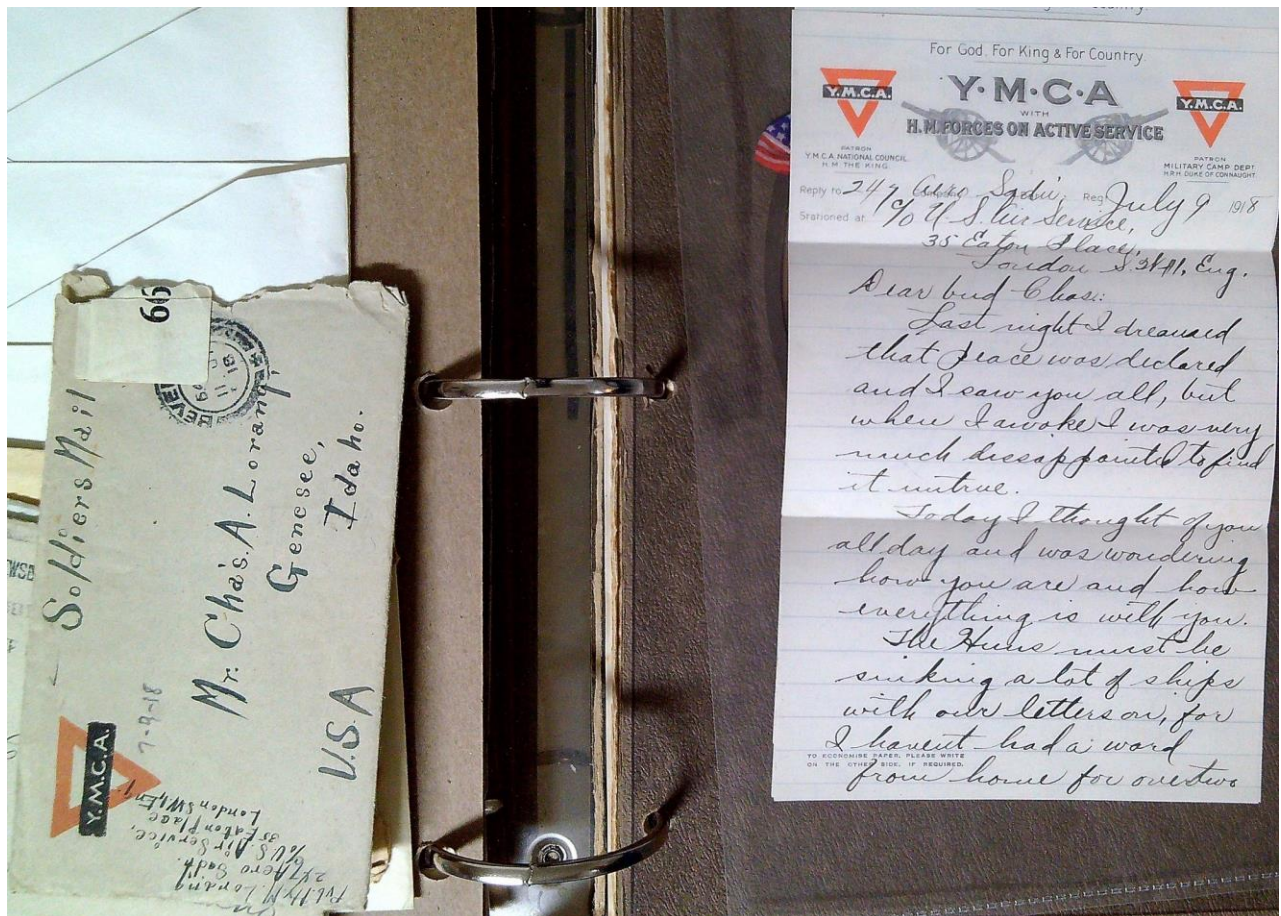 Soldiers Mail
66
BEVE
Mr. Chas. A. Lorang,
Genesee,
Idaho.
U.S.A
Y.M.C.A.
7-9-18
Lorang
247 Aero Sqdr.
% U.S. Air Service,
35 Eaton Place,
London S.W.1, Eng.
Country.
For God, For King & For Country.
Y.M.C.A.
Y·M·C·A
WITH
H.M. FORCES ON ACTIVE SERVICE
Y.M.C.A.
PATRON
Y.M.C.A. NATIONAL COUNCIL
H.M. THE KING.
PATRON
MILITARY CAMP DEPT
H.R.H. DUKE OF CONNAUGHT.
Reply to 247 Aero Sqdr. Reg July 9 1918
Stationed at % U.S. Air Service,
35 Eaton Place,
London S.W.1, Eng.
Dear bud Chas:
Last night I dreamed
that peace was declared
and I saw you all, but
when I awoke I was very
much dissappointed to find
it untrue.
Today I thought of you
all day and was wondering
how you are and how
everything is with you.
The Huns must be
sinking a lot of ships
with our letters on, for
I havent had a word
TO ECONOMISE PAPER, PLEASE WRITE
ON THE OTHER SIDE, IF REQUIRED.
from home for over two